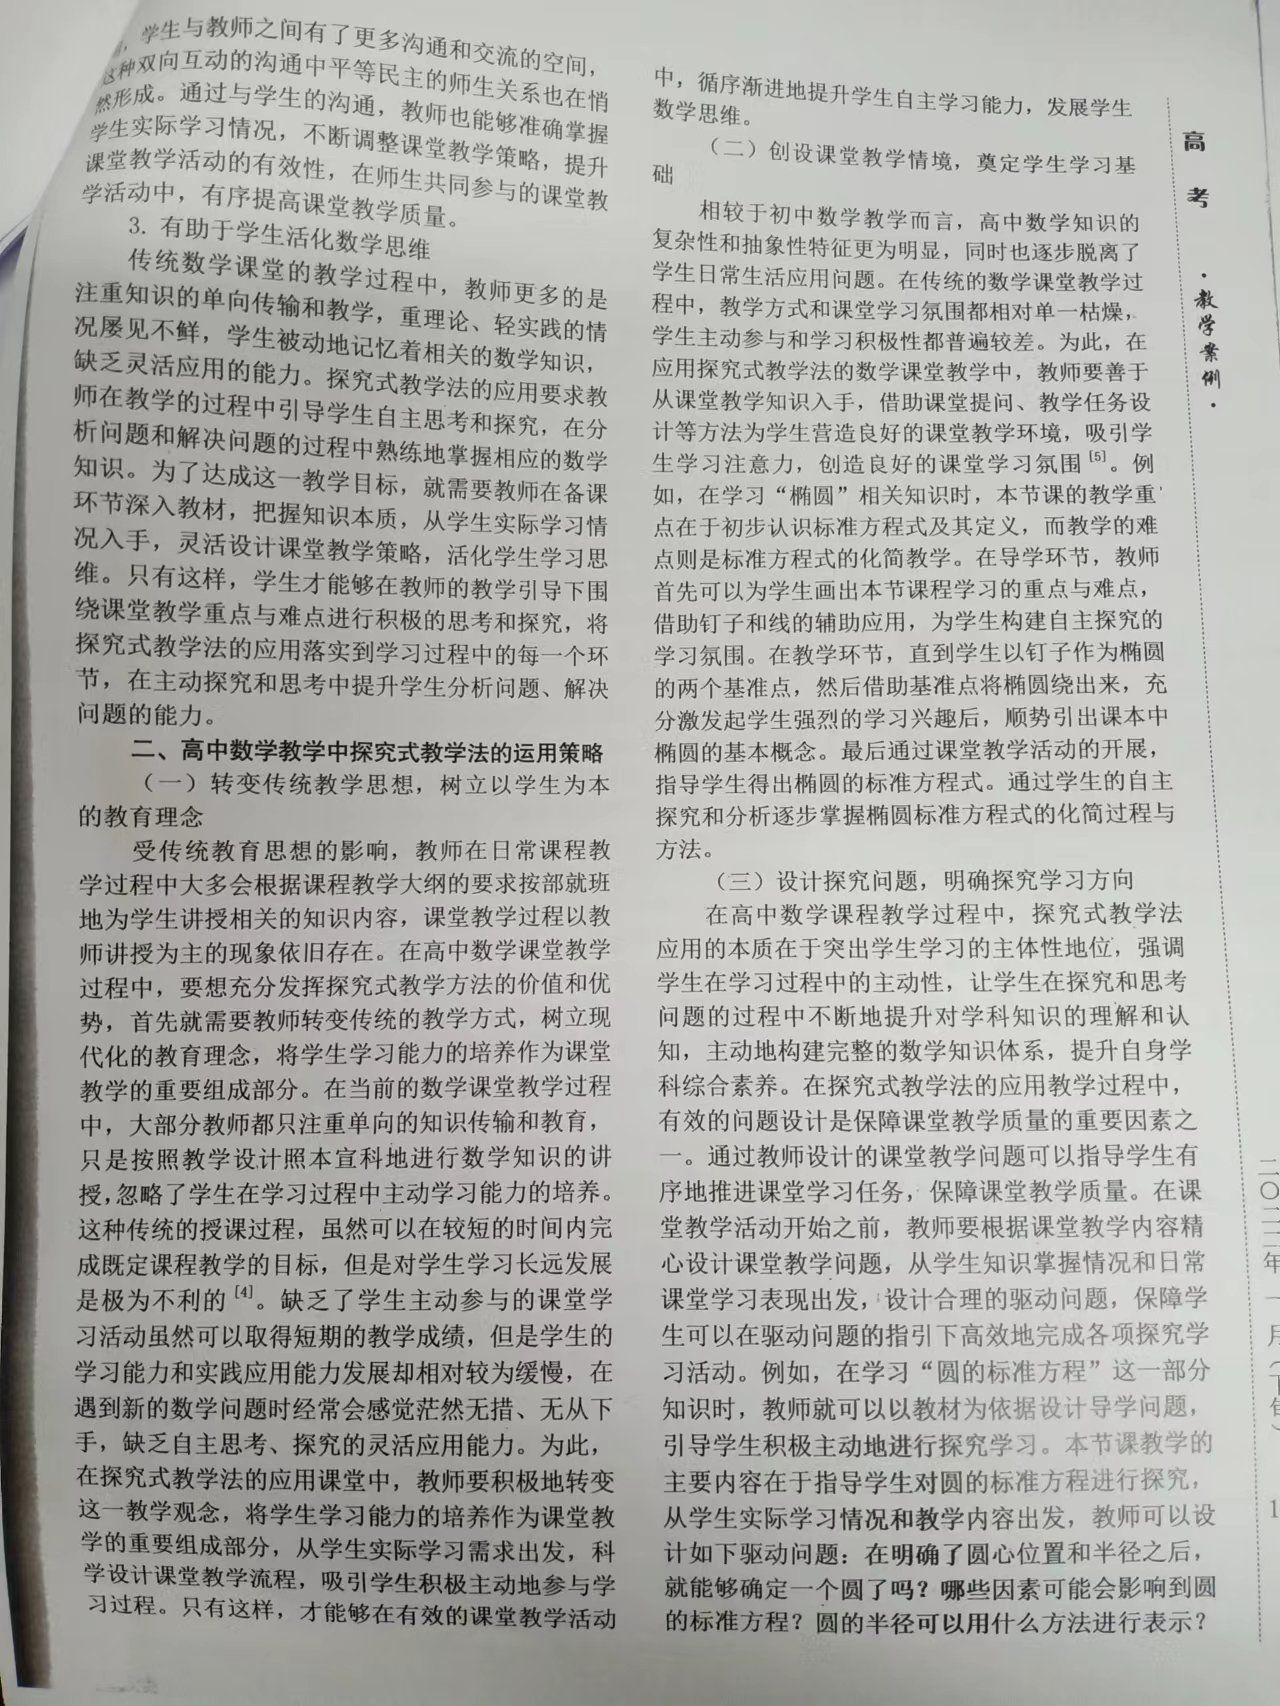 ，学生与教师之间有了更多沟通和交流的空间，
这种双向互动的沟通中平等民主的师生关系也在悄
然形成。通过与学生的沟通，教师也能够准确掌握
学生实际学习情况，不断调整课堂教学策略，提升
课堂教学活动的有效性，在师生共同参与的课堂教
学活动中，有序提高课堂教学质量。
3. 有助于学生活化数学思维
传统数学课堂的教学过程中，教师更多的是
注重知识的单向传输和教学，重理论、轻实践的情
况屡见不鲜，学生被动地记忆着相关的数学知识，
缺乏灵活应用的能力。探究式教学法的应用要求教
师在教学的过程中引导学生自主思考和探究，在分
析问题和解决问题的过程中熟练地掌握相应的数学
知识。为了达成这一教学目标，就需要教师在备课
环节深入教材，把握知识本质，从学生实际学习情
况入手，灵活设计课堂教学策略，活化学生学习思
维。只有这样，学生才能够在教师的教学引导下围
绕课堂教学重点与难点进行积极的思考和探究，将
探究式教学法的应用落实到学习过程中的每一个环
节，在主动探究和思考中提升学生分析问题、解决
问题的能力。
二、高中数学教学中探究式教学法的运用策略
（一）转变传统教学思想，树立以学生为本
的教育理念
受传统教育思想的影响，教师在日常课程教
学过程中大多会根据课程教学大纲的要求按部就班
地为学生讲授相关的知识内容，课堂教学过程以教
师讲授为主的现象依旧存在。在高中数学课堂教学
过程中，要想充分发挥探究式教学方法的价值和优
势，首先就需要教师转变传统的教学方式，树立现
代化的教育理念，将学生学习能力的培养作为课堂
教学的重要组成部分。在当前的数学课堂教学过程
中，大部分教师都只注重单向的知识传输和教育，
只是按照教学设计照本宣科地进行数学知识的讲
授，忽略了学生在学习过程中主动学习能力的培养。
这种传统的授课过程，虽然可以在较短的时间内完
成既定课程教学的目标，但是对学生学习长远发展
是极为不利的[4]。缺乏了学生主动参与的课堂学
习活动虽然可以取得短期的教学成绩，但是学生的
学习能力和实践应用能力发展却相对较为缓慢，在
遇到新的数学问题时经常会感觉茫然无措、无从下
手，缺乏自主思考、探究的灵活应用能力。为此，
在探究式教学法的应用课堂中，教师要积极地转变
这一教学观念，将学生学习能力的培养作为课堂教
学的重要组成部分，从学生实际学习需求出发，科
学设计课堂教学流程，吸引学生积极主动地参与学
习过程。只有这样，才能够在有效的课堂教学活动
中，循序渐进地提升学生自主学习能力，发展学生
数学思维。
（二）创设课堂教学情境，奠定学生学习基
础
相较于初中数学教学而言，高中数学知识的
复杂性和抽象性特征更为明显，同时也逐步脱离了
学生日常生活应用问题。在传统的数学课堂教学过
程中，教学方式和课堂学习氛围都相对单一枯燥，
学生主动参与和学习积极性都普遍较差。为此，在
应用探究式教学法的数学课堂教学中，教师要善于
从课堂教学知识入手，借助课堂提问、教学任务设
计等方法为学生营造良好的课堂教学环境，吸引学
生学习注意力，创造良好的课堂学习氛围[5]。例
如，在学习“椭圆”相关知识时，本节课的教学重
点在于初步认识标准方程式及其定义，而教学的难
点则是标准方程式的化简教学。在导学环节，教师
首先可以为学生画出本节课程学习的重点与难点，
借助钉子和线的辅助应用，为学生构建自主探究的
学习氛围。在教学环节，直到学生以钉子作为椭圆
的两个基准点，然后借助基准点将椭圆绕出来，充
分激发起学生强烈的学习兴趣后，顺势引出课本中
椭圆的基本概念。最后通过课堂教学活动的开展，
指导学生得出椭圆的标准方程式。通过学生的自主
探究和分析逐步掌握椭圆标准方程式的化简过程与
方法。
（三）设计探究问题，明确探究学习方向
在高中数学课程教学过程中，探究式教学法
应用的本质在于突出学生学习的主体性地位，强调
学生在学习过程中的主动性，让学生在探究和思考
问题的过程中不断地提升对学科知识的理解和认
知，主动地构建完整的数学知识体系，提升自身学
科综合素养。在探究式教学法的应用教学过程中，
有效的问题设计是保障课堂教学质量的重要因素之
一。通过教师设计的课堂教学问题可以指导学生有
序地推进课堂学习任务，保障课堂教学质量。在课
堂教学活动开始之前，教师要根据课堂教学内容精
心设计课堂教学问题，从学生知识掌握情况和日常
课堂学习表现出发，设计合理的驱动问题，保障学
生可以在驱动问题的指引下高效地完成各项探究学
习活动。例如，在学习“圆的标准方程”这一部分
知识时，教师就可以以教材为依据设计导学问题，
引导学生积极主动地进行探究学习。本节课教学的
主要内容在于指导学生对圆的标准方程进行探究，
从学生实际学习情况和教学内容出发，教师可以设
计如下驱动问题：在明确了圆心位置和半径之后，
就能够确定一个圆了吗？哪些因素可能会影响到圆
的标准方程？圆的半径可以用什么方法进行表示？
高考
·教学案例·